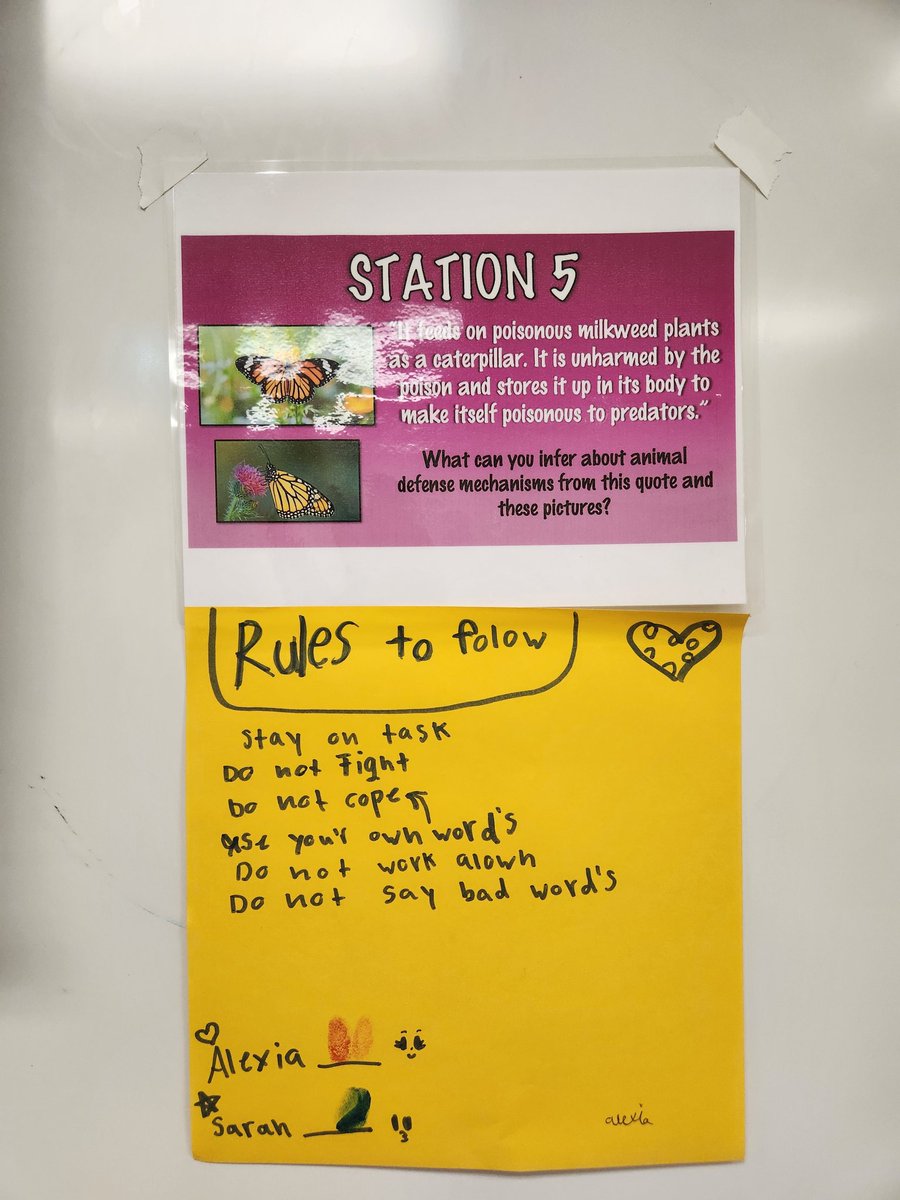 STATION 5
"It feeds on poisonous milkweed plants
as a caterpillar. It is unharmed by the
poison and stores it up in its body to
make itself poisonous to predators."
What can you infer about animal
defense mechanisms from this quote and
these pictures?
Rules to folow
Stay on task
Do not Fight
Do not cope
use your own word's
Do not work alowh
Do not say bad word's
Alexia
Sarah
alexia